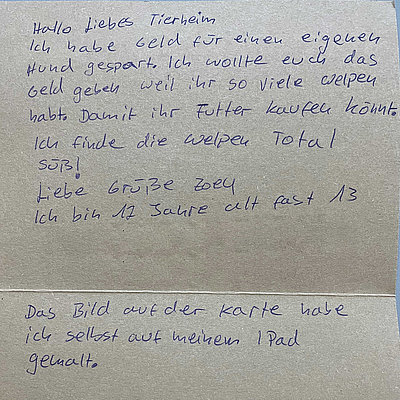 Hallo Liebes Tierheim
Ich habe Geld für einen eigenen
Hund gespart. Ich wollte euch das
Geld geben weil ihr so viele welpen
habt. Damit ihr Futter kaufen könnt.
Ich finde die welpen Total
süß!
Liebe Grüße Zoey
Ich bin 12 Jahre alt fast 13
Das Bild auf der Karte habe
ich selbst auf meinem IPad
gemalt.